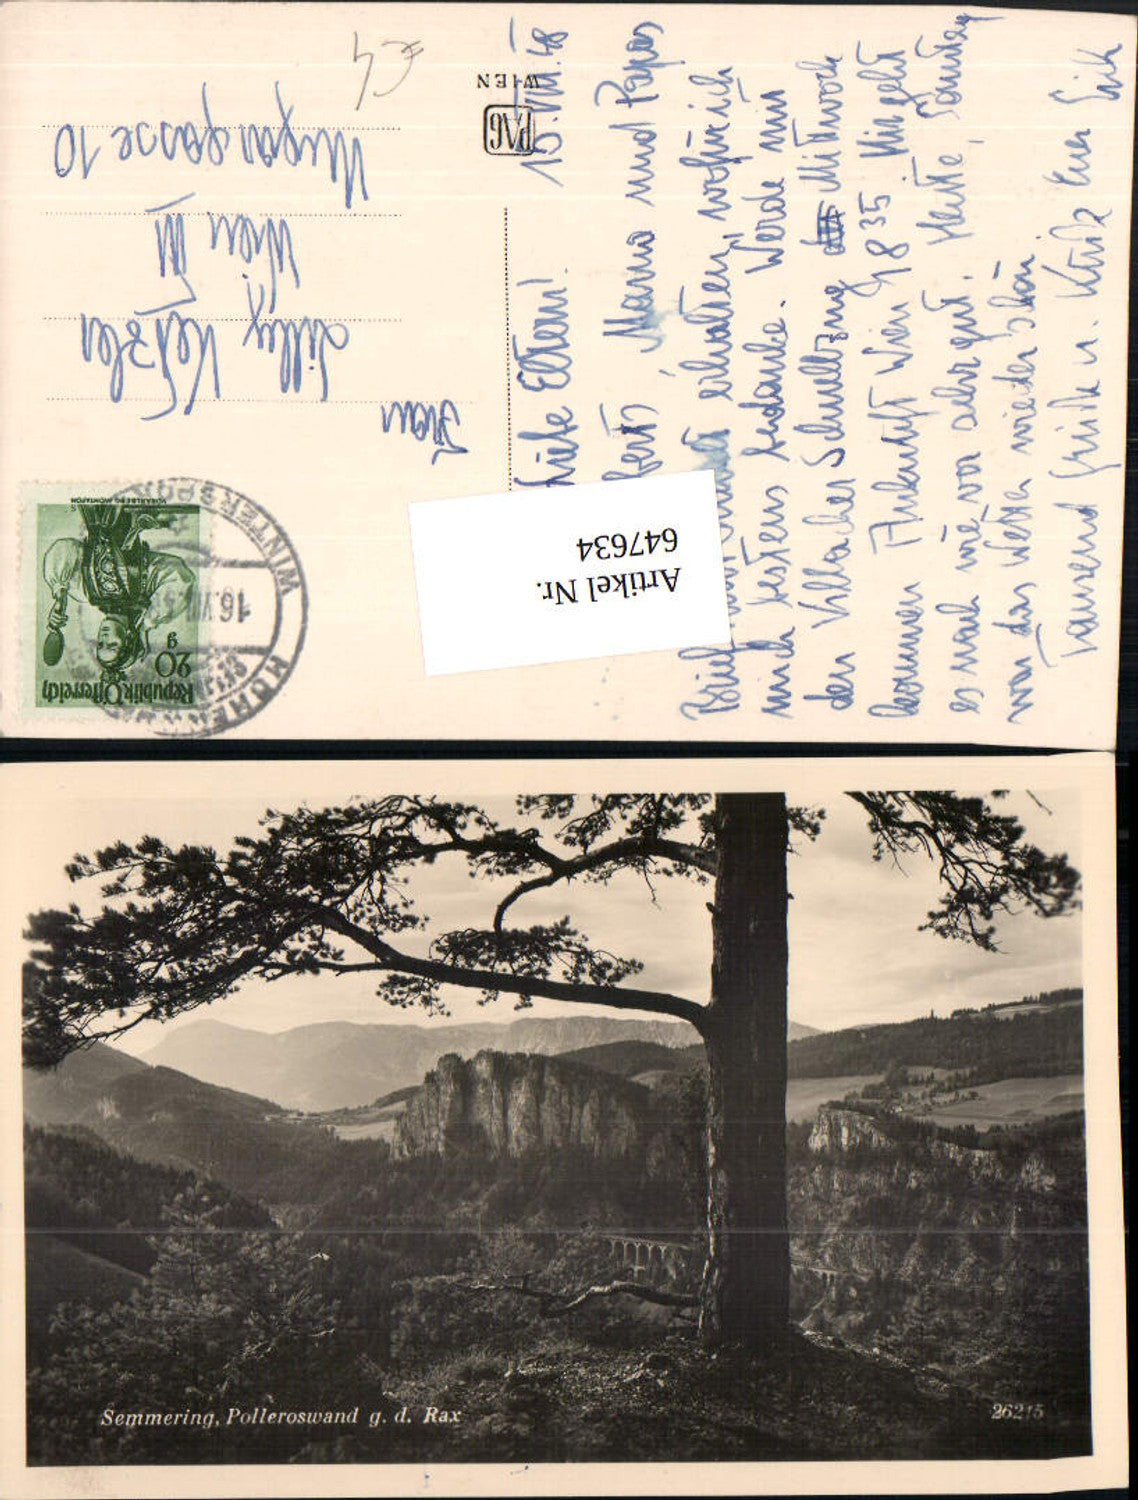 15.VIII.48
Liebe Eltern!
Mama und Papas
Brief erhalten, wofür ich
mich bestens bedanke. Werde mit
den Villacher Schnellzug Mittwoch
kommen Ankunft Wien 18 35 Mir geht
es nach wie vor sehr gut. Heute, Sonntag
war das Wetter wieder schön
Tausend Grüße u. Küße Euer Erich
PAG
WIEN
Frau
Lilly
Wien III
gasse 10
Republik Österreich
20 g
VORARLBERG, MONTAFON
WINTERSPORT
16.VIII.
Artikel Nr.
647634
Semmering, Polleroswand g. d. Rax
26215